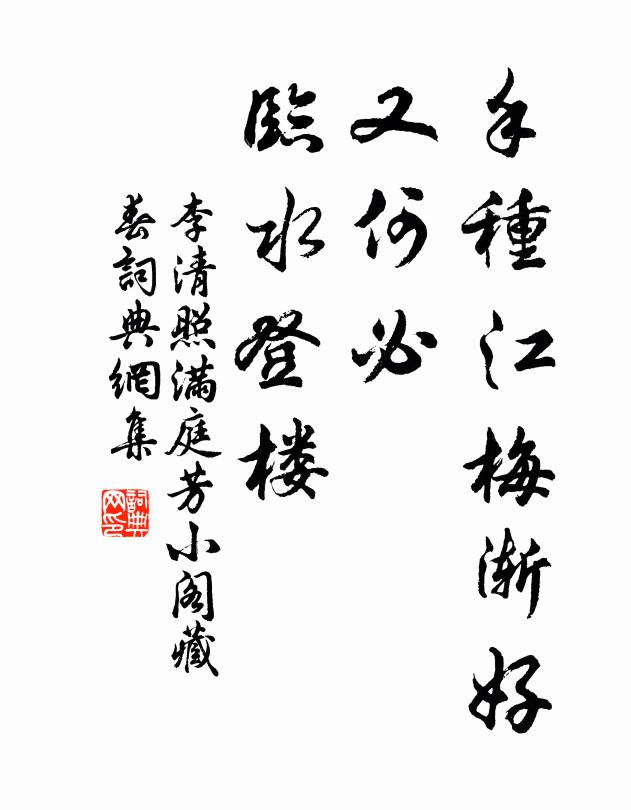 手種江梅漸好
又何必
臨水登楼
李清照滿庭芳小閣藏
春詞典網集
詞典
网印